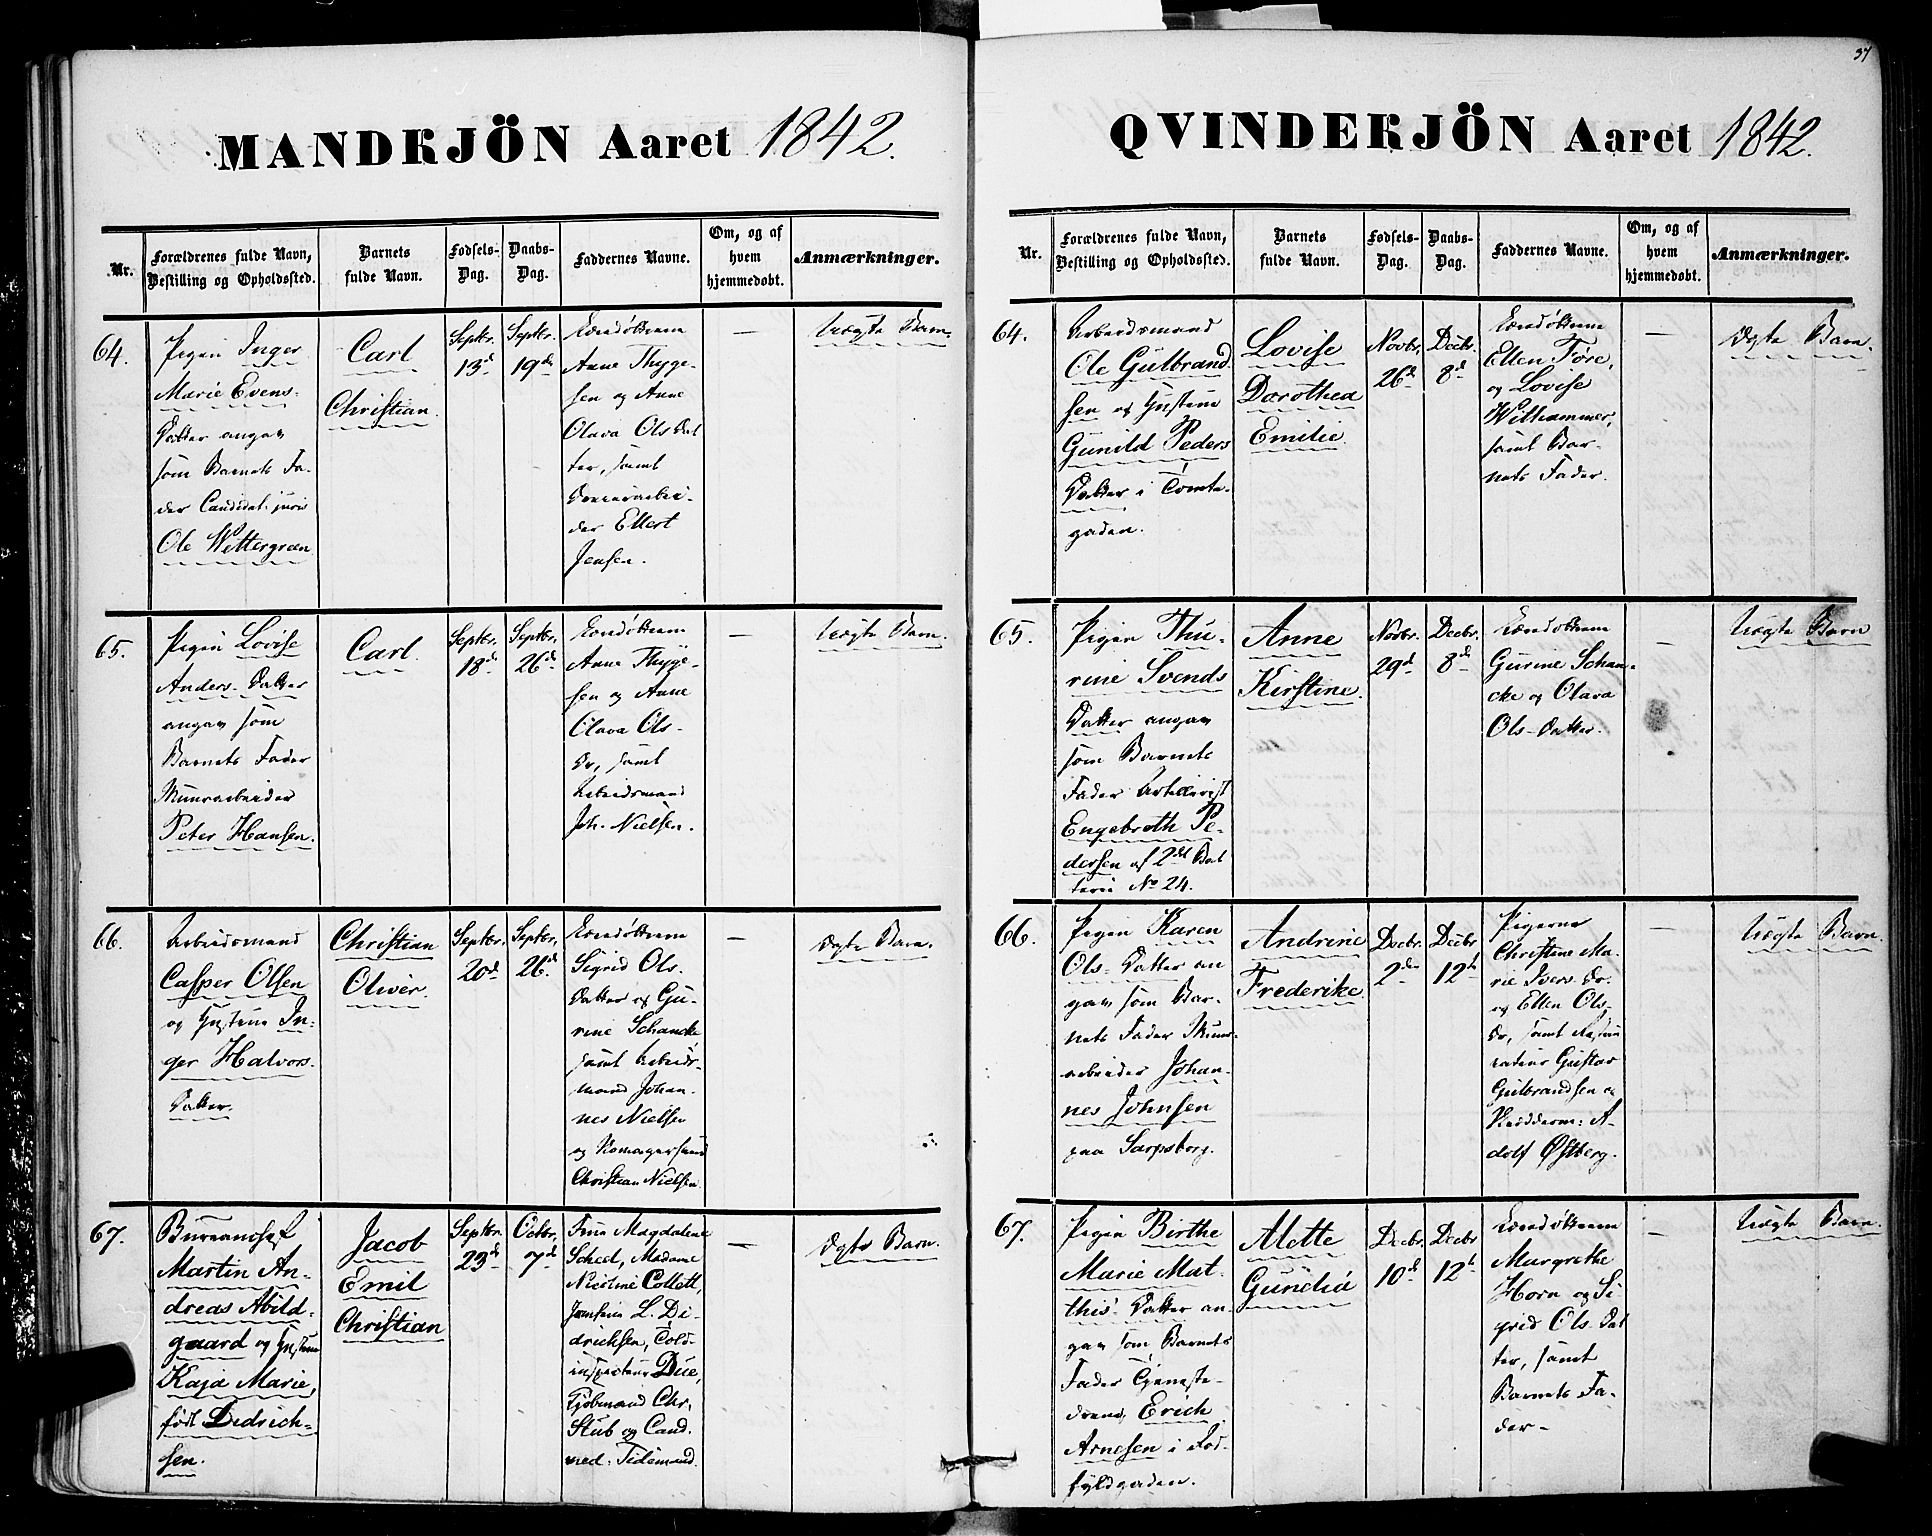 MANDKJÖN Aaret 1842.
Nr.
Forældrenes fulde Navn,
Bestilling og Opholdssted.
Barnets
fulde Navn.
Fødsels-
Dag.
Daabs-
Dag.
Faddernes Navne.
Om, og af
hvem
hjemmedøbt.
Anmærkninger.
64.
Pigen Inger
Marie Evens-
Datter angav
som Barnets Fa-
der Candidat: juris
Ole Wettergreen
Carl
Christian.
Septbr.
13d
Septbr.
19de
Anne Thyge-
sen og Anne
Olava Ols Dat
ter, samt
der Ellert
Jensen.
—
Uægte Barn.
65.
Pigen Lovise
Anders-Datter
angav som
Barnets Fader
Muurarbeider
Peter Hansen.
Carl.
Septbr.
18d
Septbr.
26d
Anne Thyge-
sen og Anne
Olava Ols-
Dr, samt
Arbeidsmand
Joh. Nielsen.
—
Uægte Barn.
66.
Arbeidsmand
Casper Olsen
og Hustrue In-
ger Halvors-
Datter.
Christian
Oliver.
Septbr.
20d
Septbr.
26d
Sigrid Ols-
Datter og Gu-
rine Schancke
samt Arbeids-
mand Johan-
nes Nielsen
og
Christian Nielsen
—
Ægte Barn.
67.
Martin An-
dreas Abild-
gaard og Hustrue
Kaja Marie,
født Didrich-
sen.
Jacob
Emil
Christian
Septbr.
23d
Octbr.
7d
Frue Magdalene
Scheel, Madame
Nicoline Collett,
Jomfrue L. Di-
drichsen, Told-
inspecteur Due,
Kjøbmand Chr.
Stub og Cand.
med: Tidemand.
—
Ægte Barn.
37
QVINDERJÖN Aaret 1842.
Nr.
Forældrenes fulde Navn,
Bestilling og Opholdssted.
Barnets
fulde Navn.
Fødsels-
Dag.
Daabs-
Dag.
Faddernes Navne.
Om, og af
hvem
hjemmedøbt.
Anmærkninger.
64.
Arbeidsmand
Ole Gulbrand
sen og Hustrue
Gunild Peders
Datter i Tomte-
gaden.
Lovise
Dorothea
Emilie.
Novbr.
26d
Decbr.
8d
Ellen Tøre,
og Lovise
Withammer,
samt Bar-
nets Fader.
—
Ægte Barn.
65.
Pigen Thu-
rine Svends
Datter angav
som Barnets
Fader Artillerist
Engebreth Pe-
dersen af 2det Bat
terie No 24.
Anne
Kirstine.
Novbr.
29d
Decbr.
8d
Gurine Schan-
cke og Olava
Ols-Datter.
—
Uægte Barn
66.
Pigen Karen
Ols-Datter an
gav som Bar-
nets Fader Muur-
arbeider Johan-
nes Johnsen
paa Sarpsborg.
Andrine
Frederike.
Decbr.
2den
Decbr
12te
Pigerne
Christine Ma-
rie Ivers Dr.
og Ellen Ols-
Dr, samt
Gustav
Gulbrandsen og
A-
dolf Østberg.
—
Uægte Barn.
67.
Pigen Birthe
Marie Mat-
this-Datter an-
gav som Barnets
Fader Tjeneste-
dreng Erich
Arnesen i Fod-
fyldgaden.
Alette
Gunelia
Decbr.
10d
Decbr
12te
Margrethe
Horn og Si-
grid Ols-Dat
ter, samt
Barnets Fa-
der-
—
Uægte Barn.